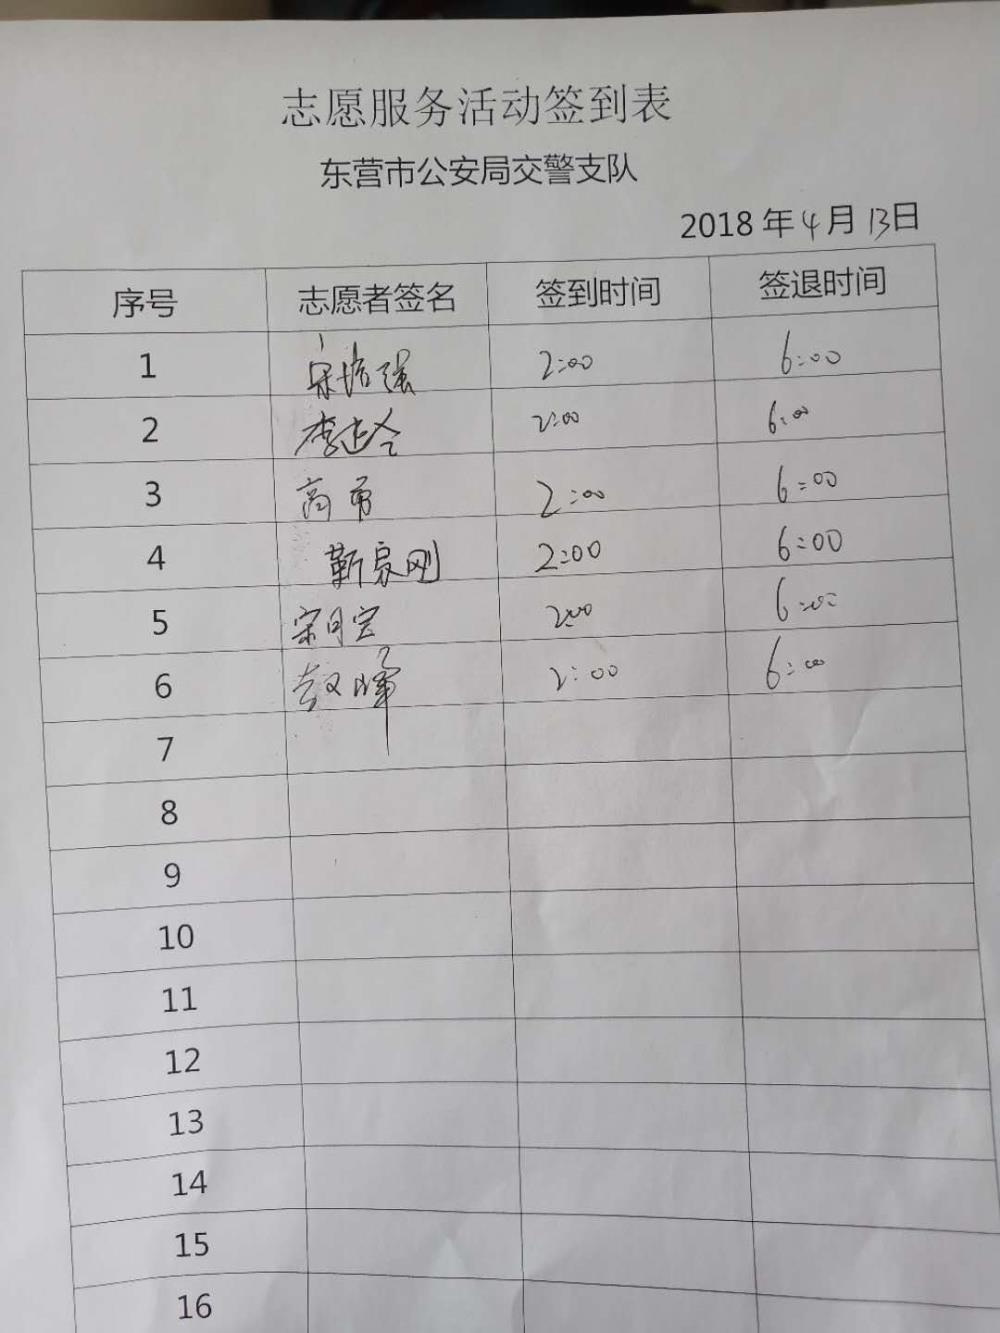 志愿服务活动签到表
东营市公安局交警支队
2018年4月13日
序号 志愿者签名 签到时间 签退时间
1 宋培强 2:00 6:00
2 李 2:00 6:00
3 高勇 2:00 6:00
4 靳家刚 2:00 6:00
5 宋月宝 2:00 6:00
6 赵峰 2:00 6:00
7
8
9
10
11
12
13
14
15
16